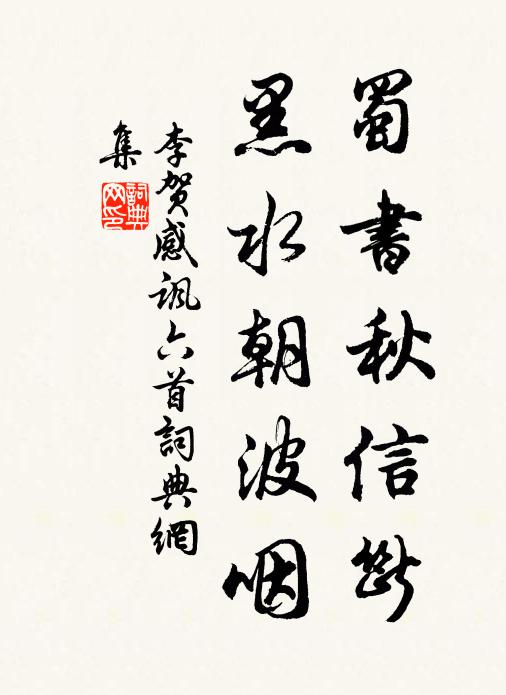 蜀書秋信斷
黑水朝波咽
李賀感諷六首詞典網
集
詞典网印